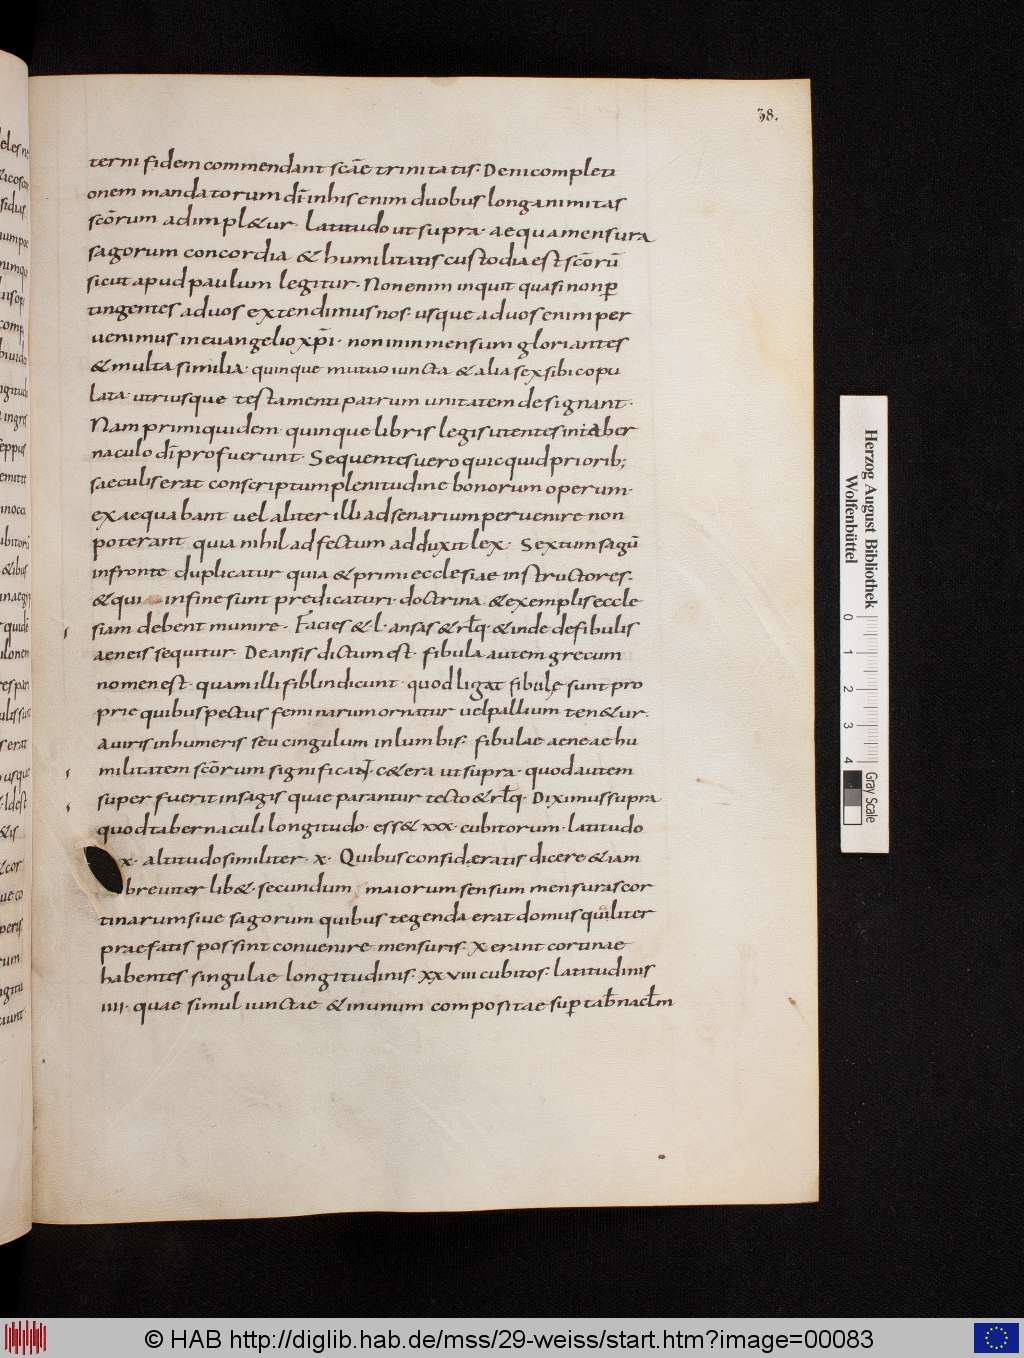 38.
terni fidem commendant scāe trinitatis. Deni completi
onem mandatorum dī in his enim duobus longanimitas
scōrum adimpl&ur. latitudo ut supra. aequa mensura
sagorum concordia & humilitatis custodia est scōrū
sicut apud paulum legitur. Non enim inquit quasi non ꝑ
tingentes ad uos extendimus nos. usque ad uos enim per
uenimus in euangelio xp̄i. non in inmensum gloriantes
& multa similia. quinque mutuo iuncta & alia sex sibi copu
lata. utriusque testamenti patrum unitatem designant.
Nam primi quidem quinque libris legis utentes in taber
naculo dī profuerunt. Sequentes uero quicquid priorib;
saeculis erat conscriptum plenitudine bonorum operum.
exaequabant uel aliter illi ad senarium peruenire non
poterant quia nihil ad fectum adduxit lex. Sextum sagū
in fronte duplicatur quia & primi ecclesiae instructores.
& qui in fine sunt predicaturi. doctrina & exemplis eccle
siam debent munire. Facies & l. ansas & rl̄q. & inde de fibulis
aeneis sequitur. De ansis dictum est. fibula autem grecum
nomen est. quam illi fiblin dicunt. quod ligat fibulę sunt pro
prie quibus pectus feminarum ornatur uel pallium ten&ur.
a uiris in humeris seu cingulum in lumbis. fibulae aeneae hu
militatem scōrum significant. c&era ut supra. quod autem
super fuerit in sagis quae parantur tecto & rl̄q. Diximus supra
quod tabernaculi longitudo. ess& xxx. cubitorum. latitudo
x. altitudo similiter. x. Quibus consideratis dicere &iam
breuiter lib&. secundum maiorum sensum mensuras cor
tinarum siue sagorum quibus tegenda erat domus qualiter
praefatis possint conuenire mensuris. x erant cortinae
habentes singulae longitudinis. xxviii cubitos. latitudinis
iiii. quae simul iunctae & in unum compositae suꝑ tab̄nacl̄m
Herzog August Bibliothek
Wolfenbüttel
0 1 2 3 4
Gray Scale
© HAB http://diglib.hab.de/mss/29-weiss/start.htm?image=00083